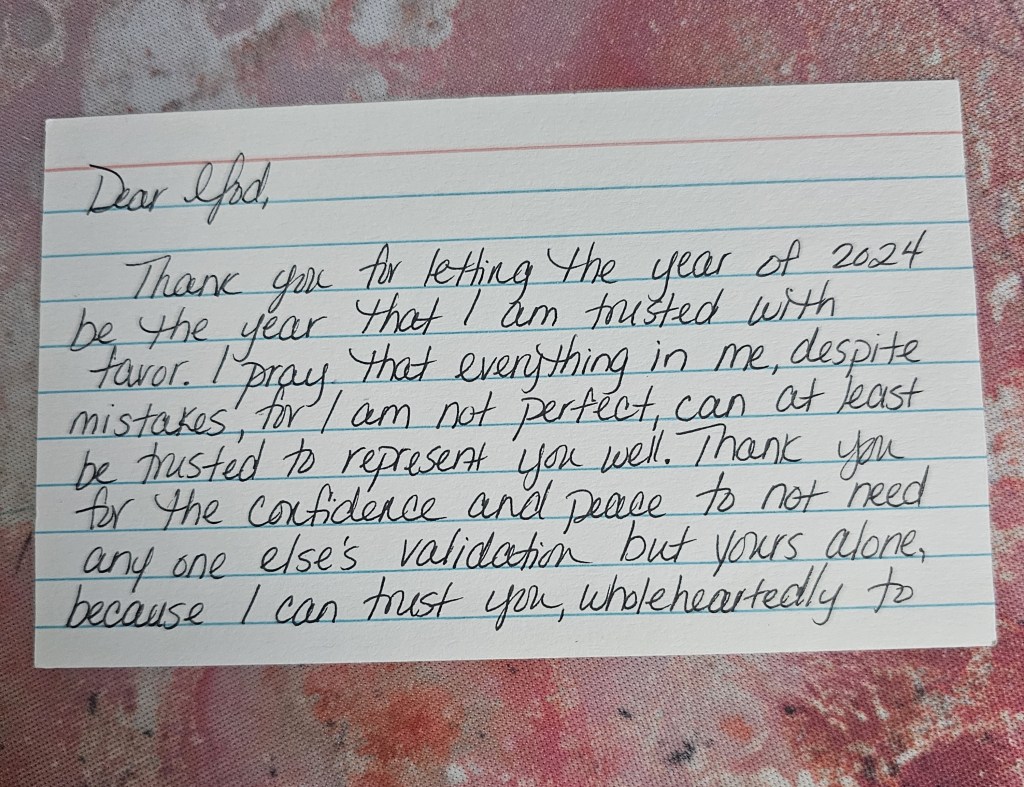 Dear God,
Thank you for letting the year of 2024
be the year that I am trusted with
favor. I pray that everything in me, despite
mistakes, for I am not perfect, can at least
be trusted to represent you well. Thank you
for the confidence and peace to not need
any one else's validation but yours alone,
because I can trust you, wholeheartedly to